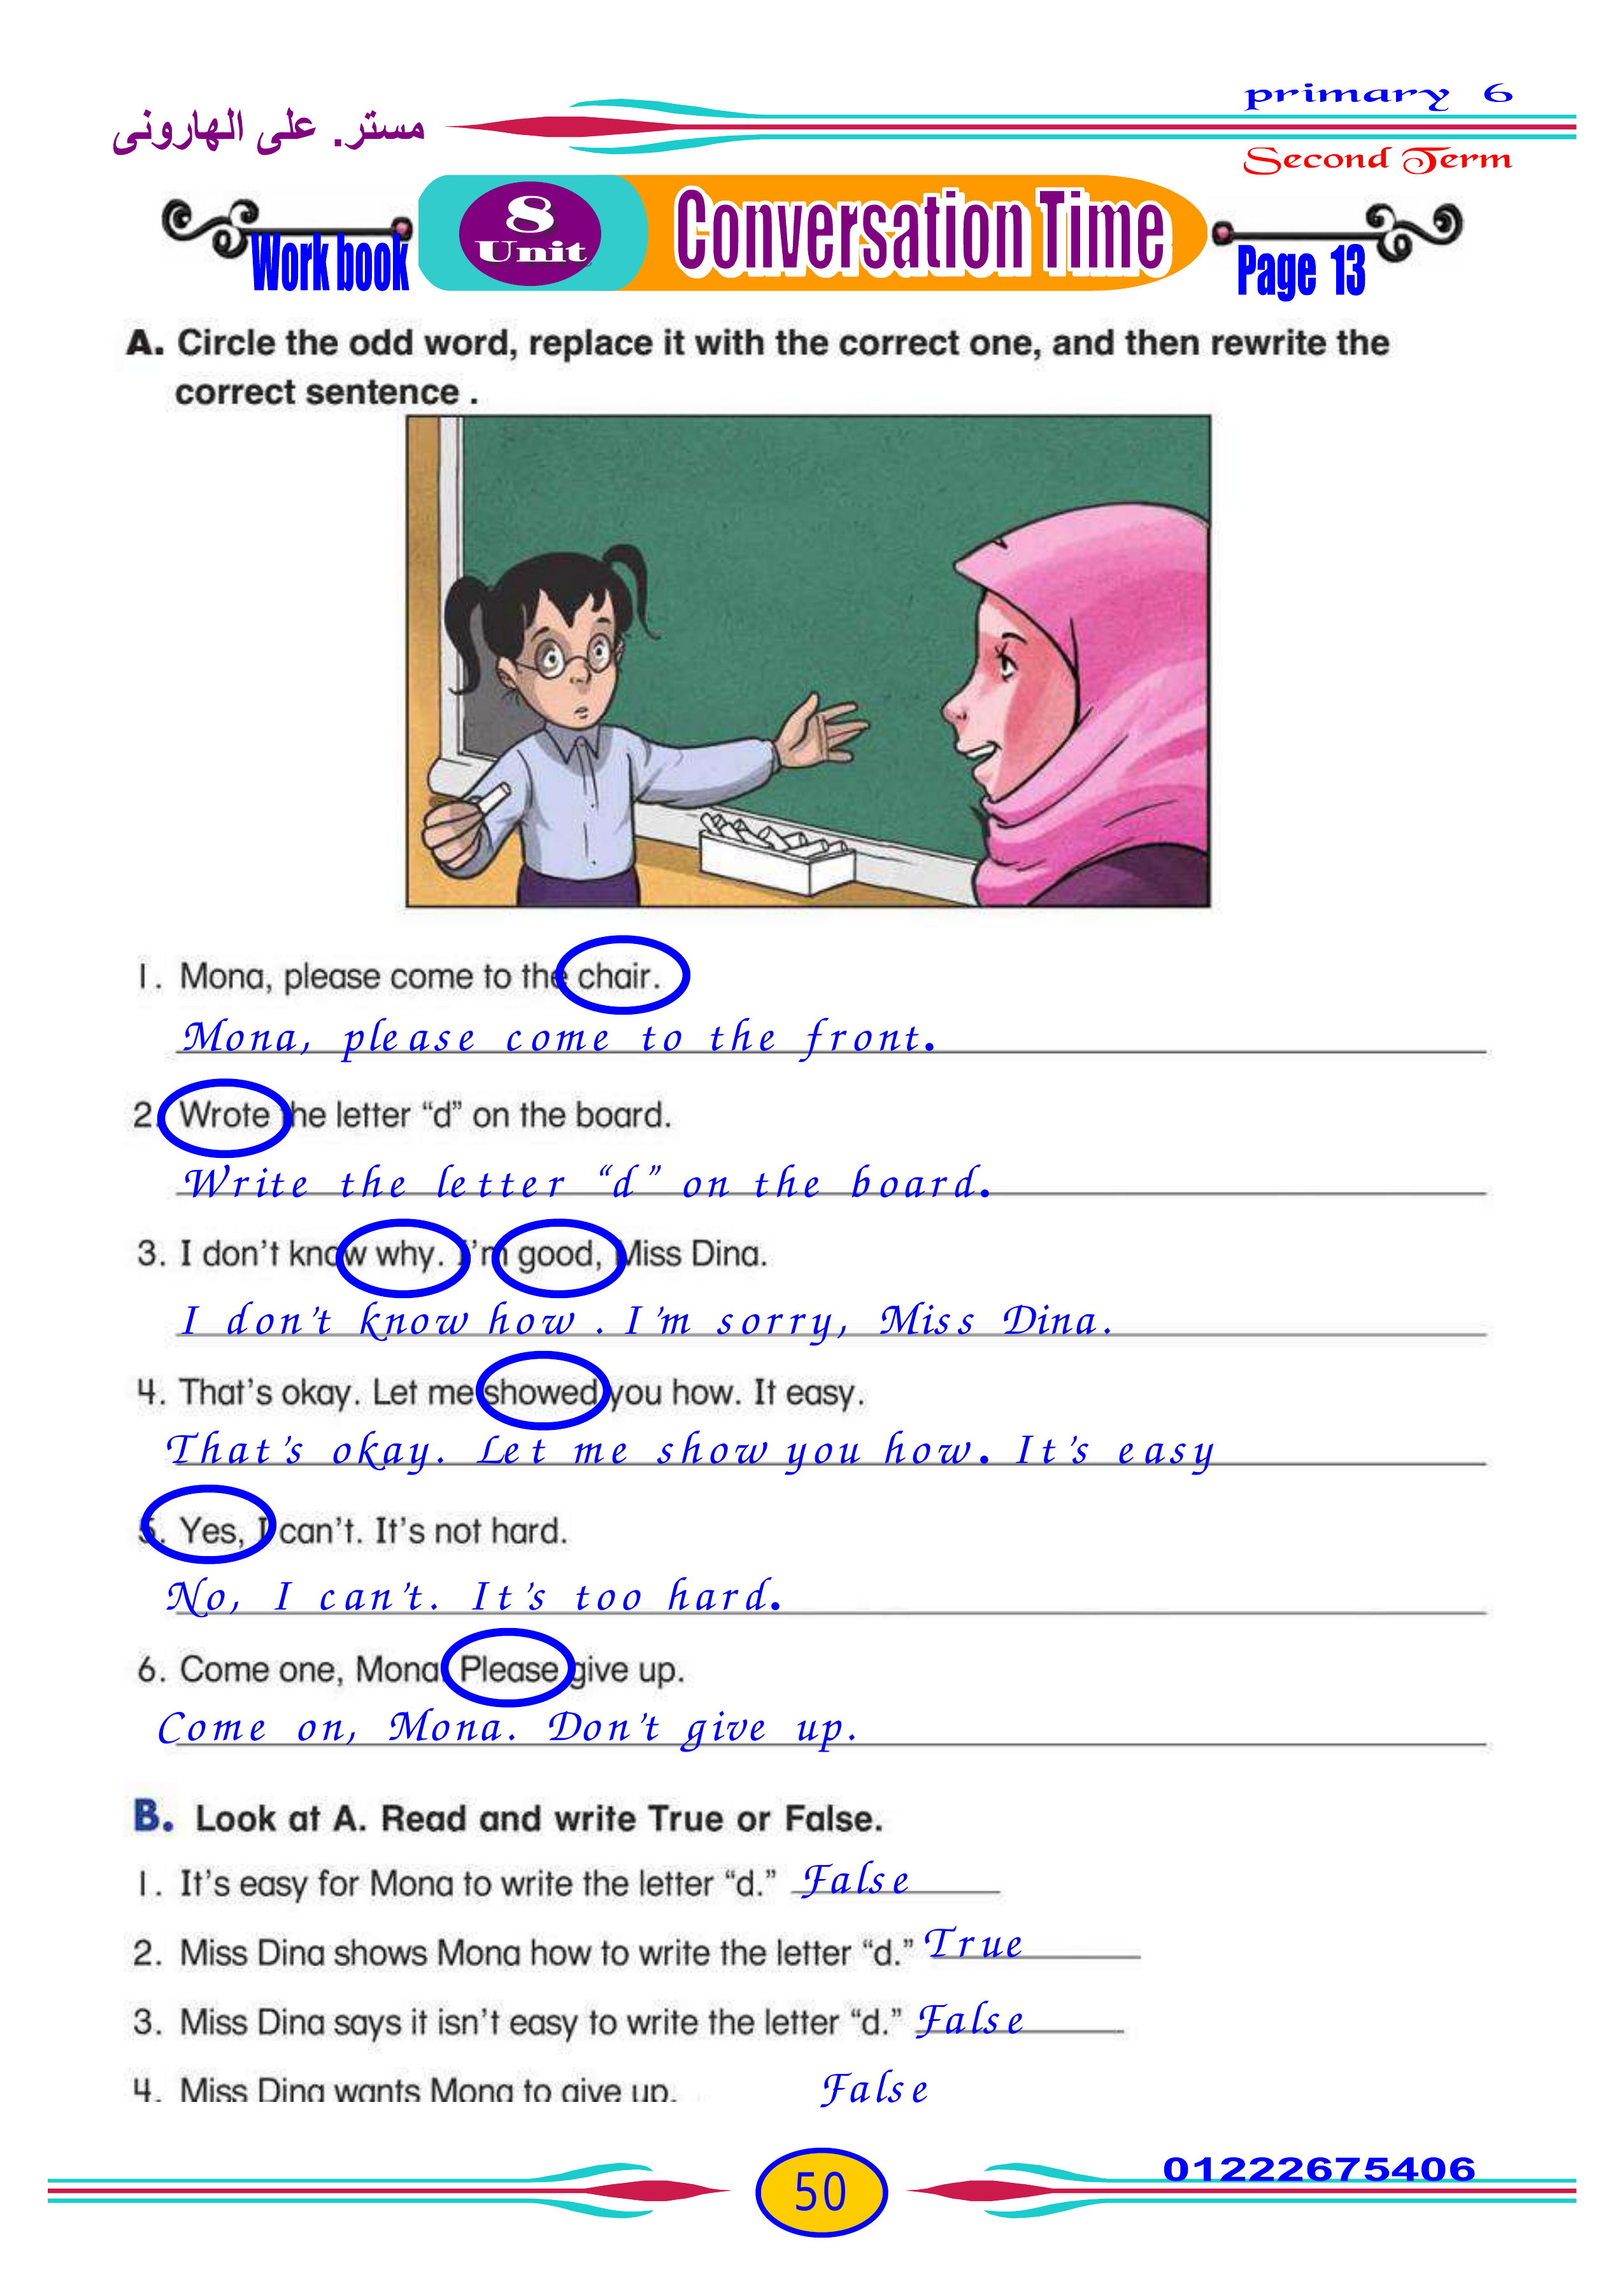 primary 6
مستر. على الهارونى
Second Term
Work book
8
Unit
Conversation Time
Page 13
A. Circle the odd word, replace it with the correct one, and then rewrite the
correct sentence .
1. Mona, please come to the chair.
Mona, please come to the front.
2. Wrote the letter “d” on the board.
Write the letter “d” on the board.
3. I don’t know why. I’m good, Miss Dina.
I don’t know how . I’m sorry, Miss Dina.
4. That’s okay. Let me showed you how. It easy.
That’s okay. Let me show you how. It’s easy
5. Yes, I can’t. It’s not hard.
No, I can’t. It’s too hard.
6. Come one, Mona. Please give up.
Come on, Mona. Don’t give up.
B. Look at A. Read and write True or False.
1. It’s easy for Mona to write the letter “d.” False
2. Miss Dina shows Mona how to write the letter “d.” True
3. Miss Dina says it isn’t easy to write the letter “d.” False
4. Miss Dina wants Mona to give up. False
50
01222675406